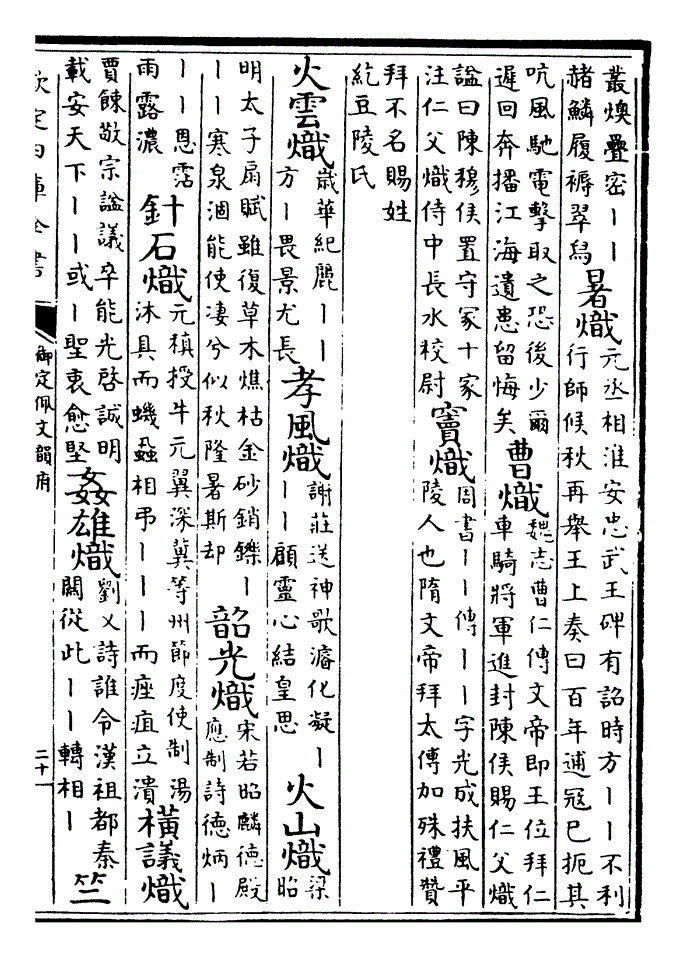 叢燠疊密丨丨
赭鱗履褥翠舄
暑熾
元丞相淮安忠武王碑有詔時方丨丨不利
行師候秋再舉王上奏曰百年逋冦已扼其
吭風馳電擊取之恐後少爾
遲回奔播江海遺患留悔矣
曹熾
魏志曹仁傳文帝即王位拜仁
車騎將軍進封陳侯賜仁父熾
諡曰陳穆侯置守冢十家
注仁父熾侍中長水校尉
竇熾
周書丨丨傳丨丨字光成扶風平
陵人也隋文帝拜太傅加殊禮贊
拜不名賜姓
紇豆陵氏
火雲熾
歳華紀麗丨丨
方丨畏景尤長
孝風熾
謝莊送神歌濬化凝丨
丨丨顧靈心結皇思
火山熾
梁昭
明太子扇賦雖復草木燋枯金砂銷鑠丨
丨丨寒泉涸能使凄兮似秋隆暑斯却
韶光熾
宋若昭麟德殿
應制詩德炳丨
丨丨恩霑
雨露濃
針石熾
元稹授牛元翼深冀等州節度使制湯
沐具而蟣蝨相弔丨丨丨而痤疽立潰
橫議熾
賈餗敬宗諡議卒能光啓誠明
載安天下丨丨或丨聖衷愈堅
姦雄熾
劉乂詩誰令漢祖都秦
關從此丨丨轉相丨
竺
欽定四庫全書
御定佩文韻府
二十一